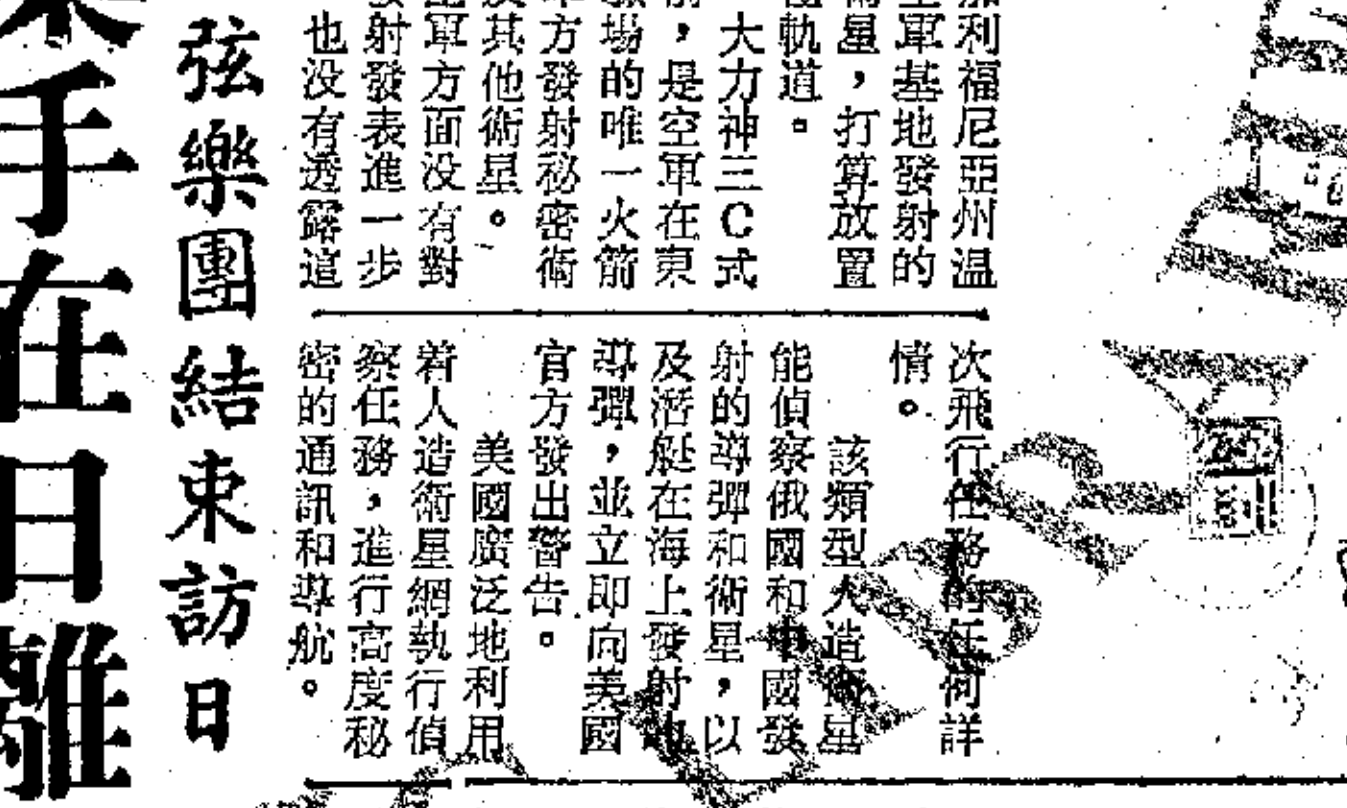 利福尼亞州温
軍基地發射的
星，打算放置
軌道。
大力神三C式
，是空軍在東
場的唯一火箭
方發射秘密衛
其他衛星。
軍方面没有對
射發表進一步
也没有透露這
次飛行任務的任何詳
情。
該類型人造衛星
能偵察俄國和中國發
射的導彈和衛星，以
及潜艇在海上發射
導彈，並立即向美國
官方發出警告。
美國廣泛地利用
着人造衛星網執行偵
察任務，進行高度秘
密的通訊和導航。
弦樂團結束訪日
手在日離